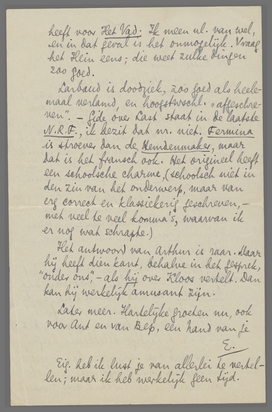 heeft voor Het Vad. Ik meen nl. van wel,
en in dat geval is het onmogelijk. Vraag
het Hein eens; die weet zulke dingen
zoo goed.
Larbaud is doodziek, zoo goed als heele-
maal verlamd, en hoogstwschl. "afgeschre-
ven". — Gide over Last staat in de laatste
N.R.F., ik bezit dat nr. niet. Fermina
is stroever dan de Hemdenmaker, maar
dat is het fransch ook. Het origineel heeft
een schoolsche charme, (schoolsch niet in
den zin van het onderwerp, maar van
erg correct en klassiekerig geschreven, —
met veel te veel komma's, waarvan ik
er nog wat schrapte.)
Het antwoord van Arthur is raar. Maar
hij heeft dien kant, behalve in het gesprek,
"onder ons", — als hij over Kloos vertelt. Dan
kan hij werkelijk amusant zijn.
Later meer. Hartelijke groeten nu, ook
voor Ant en van Bep, een hand van je
E.
Eig. heb ik lust je van allerlei te vertel-
len; maar ik heb werkelijk geen tijd.